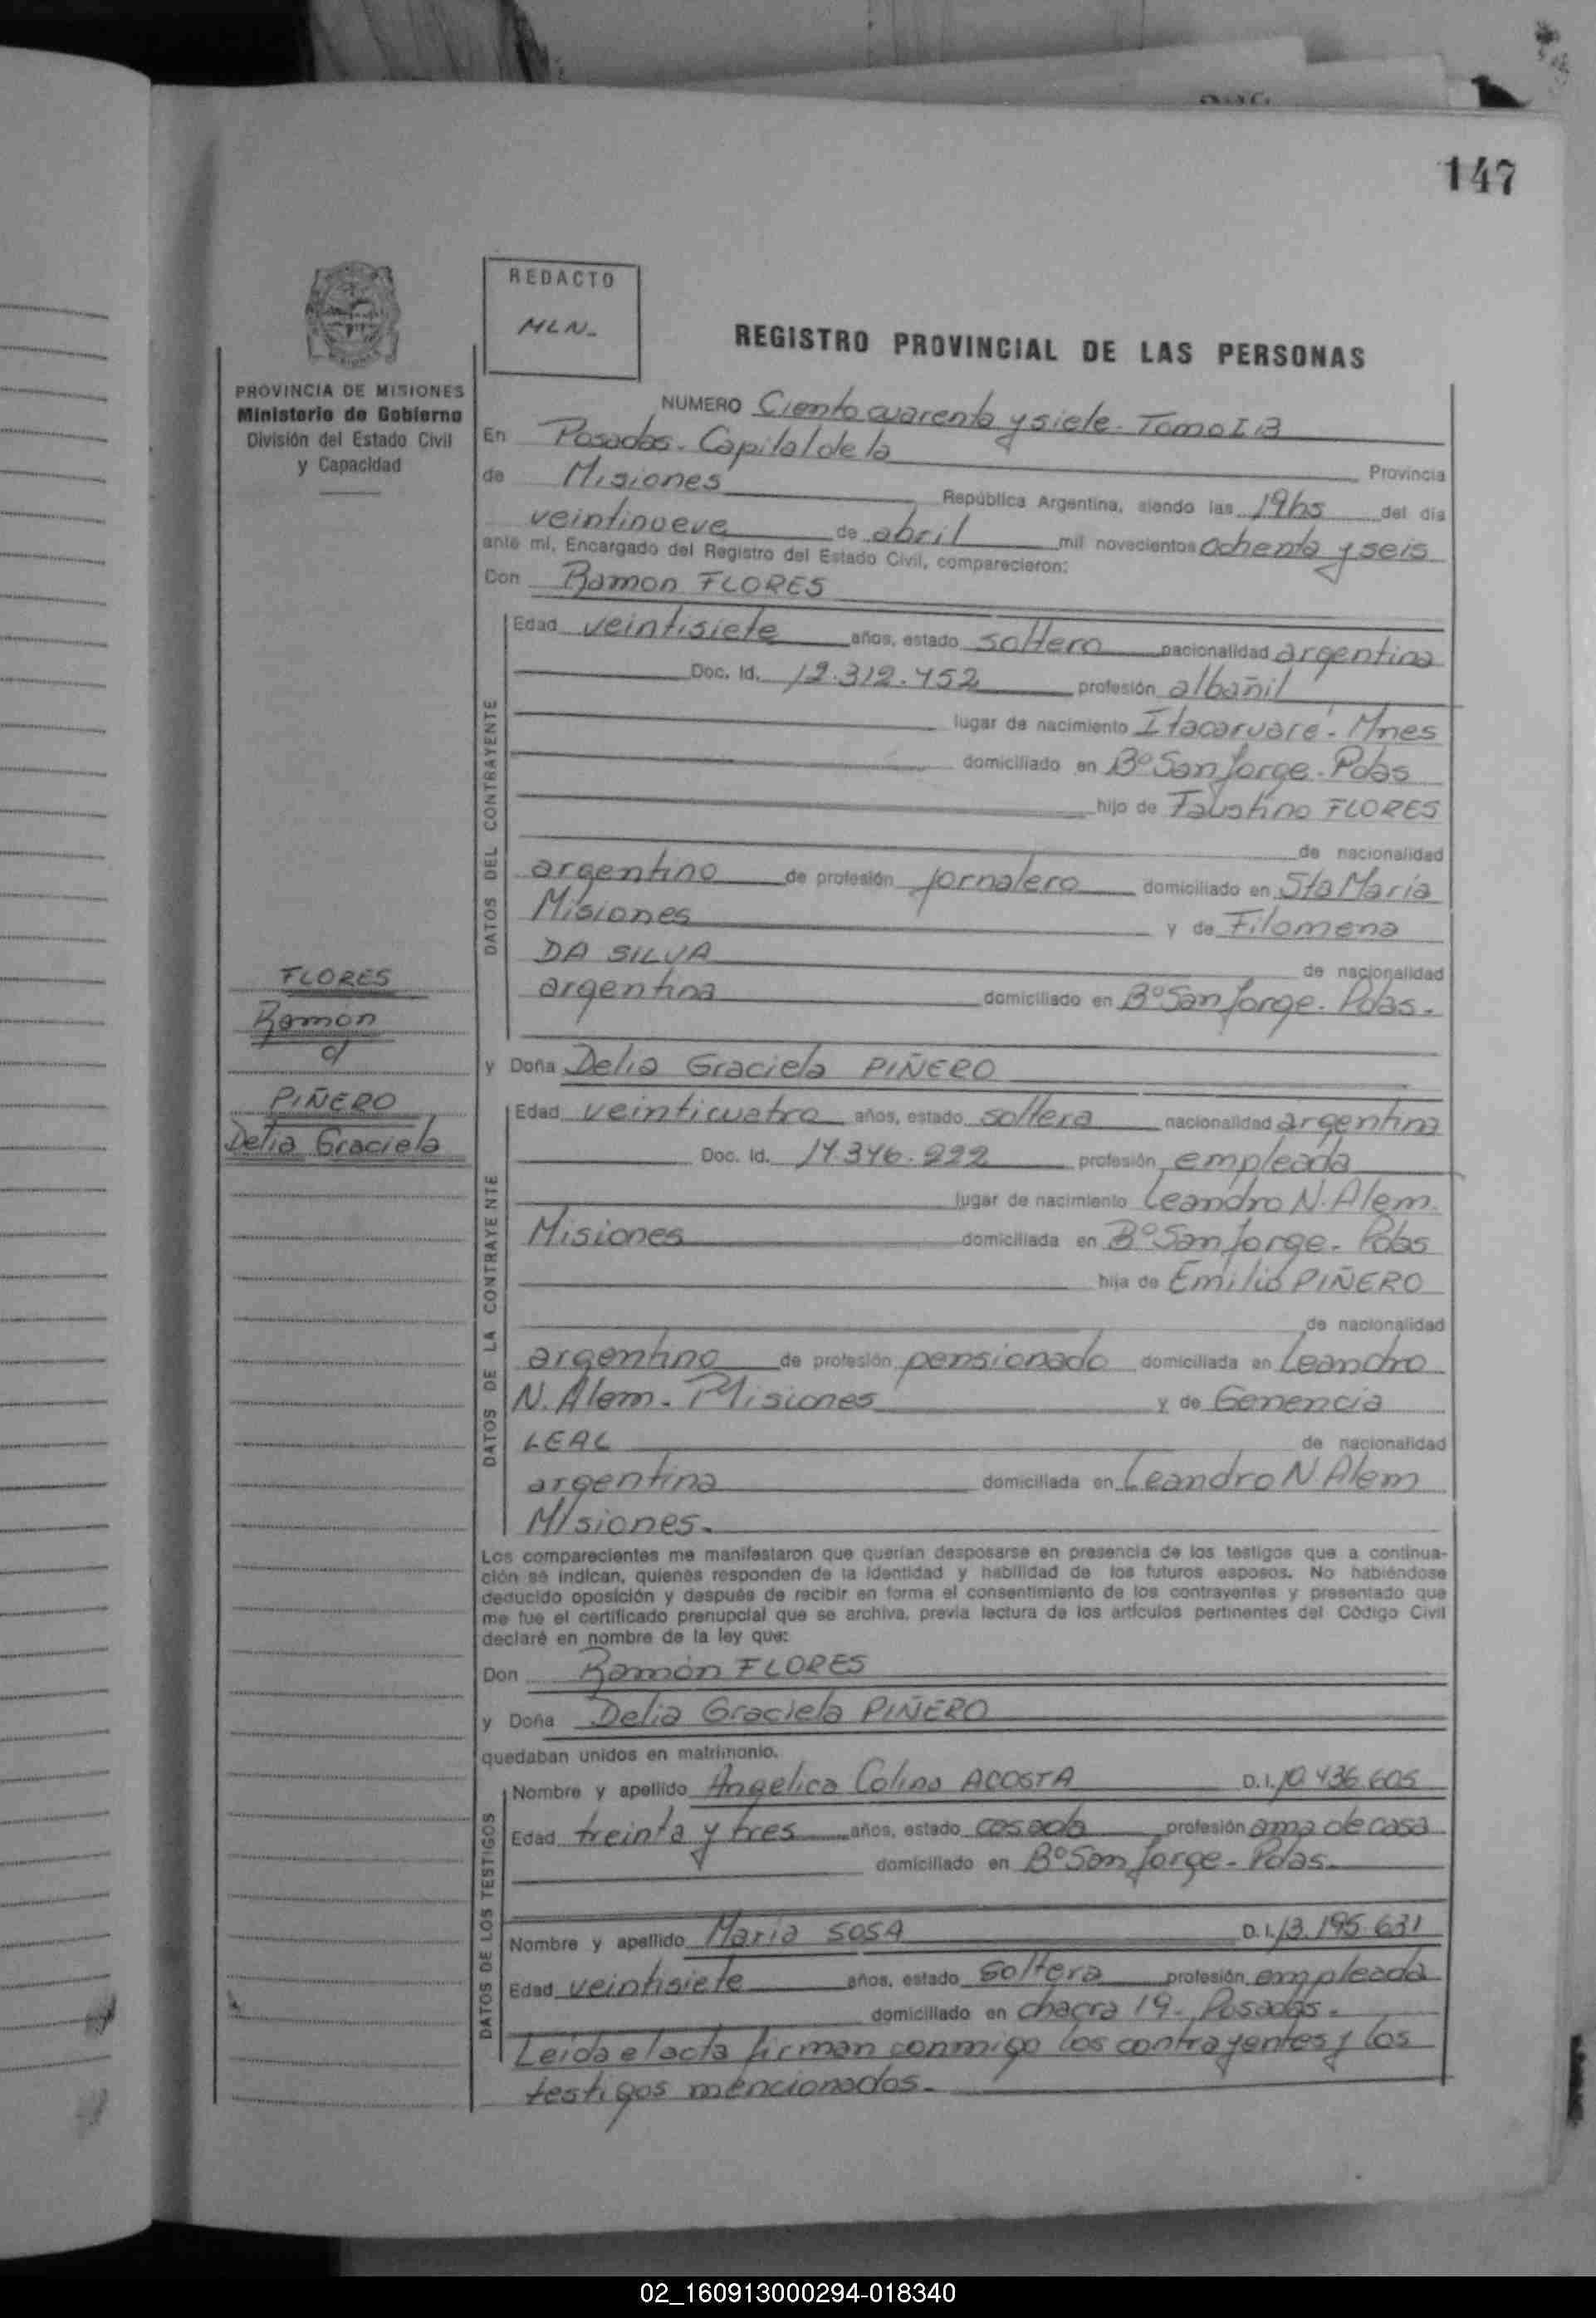 147
REDACTO
MLN-
REGISTRO PROVINCIAL DE LAS PERSONAS
PROVINCIA DE MISIONES
Ministerio de Gobierno
División del Estado Civil
y Capacidad
NUMERO Ciento cuarenta y siete. Tomo I B
En Posadas. Capital de la Provincia
de Misiones República Argentina, siendo las 19hs del día
veintinueve de abril mil novecientos ochenta y seis
ante mí, Encargado del Registro del Estado Civil, comparecieron:
Don Ramon FLORES
DATOS DEL CONTRAYENTE
Edad veintisiete años, estado soltero nacionalidad argentina
Doc. Id. 12.312.452 profesión albañil
lugar de nacimiento Itacaruaré - Mnes
domiciliado en Bº San Jorge. Pdas
hijo de Faustino FLORES
de nacionalidad
argentino de profesión jornalero domiciliado en Sta María
Misiones y de Filomena
DA SILVA de nacionalidad
argentina domiciliado en Bº San Jorge. Pdas.
FLORES
Ramón
c/
PIÑERO
Delia Graciela
y Doña Delia Graciela PIÑERO
DATOS DE LA CONTRAYENTE
Edad veinticuatro años, estado soltera nacionalidad argentina
Doc. Id. 14.346.222 profesión empleada
lugar de nacimiento Leandro N. Alem.
Misiones domiciliada en Bº San Jorge. Pdas
hija de Emilio PIÑERO
de nacionalidad
argentino de profesión pensionado domiciliada en Leandro
N. Alem - Misiones y de Genencia
LEAL de nacionalidad
argentina domiciliada en Leandro N Alem
Misiones.
Los comparecientes me manifestaron que querían desposarse en presencia de los testigos que a continua-
ción se indican, quienes responden de la identidad y habilidad de los futuros esposos. No habiéndose
deducido oposición y después de recibir en forma el consentimiento de los contrayentes y presentado que
me fue el certificado prenupcial que se archiva, previa lectura de los artículos pertinentes del Código Civil
declaré en nombre de la ley que:
Don Ramón FLORES
y Doña Delia Graciela PIÑERO
quedaban unidos en matrimonio.
DATOS DE LOS TESTIGOS
Nombre y apellido Angelica Colina ACOSTA D.I. 10.436.605
Edad treinta y tres años, estado casada profesión ama de casa
domiciliado en Bº San Jorge - Pdas.
Nombre y apellido Maria SOSA D.I. 13.195.631
Edad veintisiete años, estado soltera profesión empleada
domiciliado en chacra 19. Posadas.
Leida el acta firman conmigo los contrayentes y los
testigos mencionados.
02_160913000294-018340